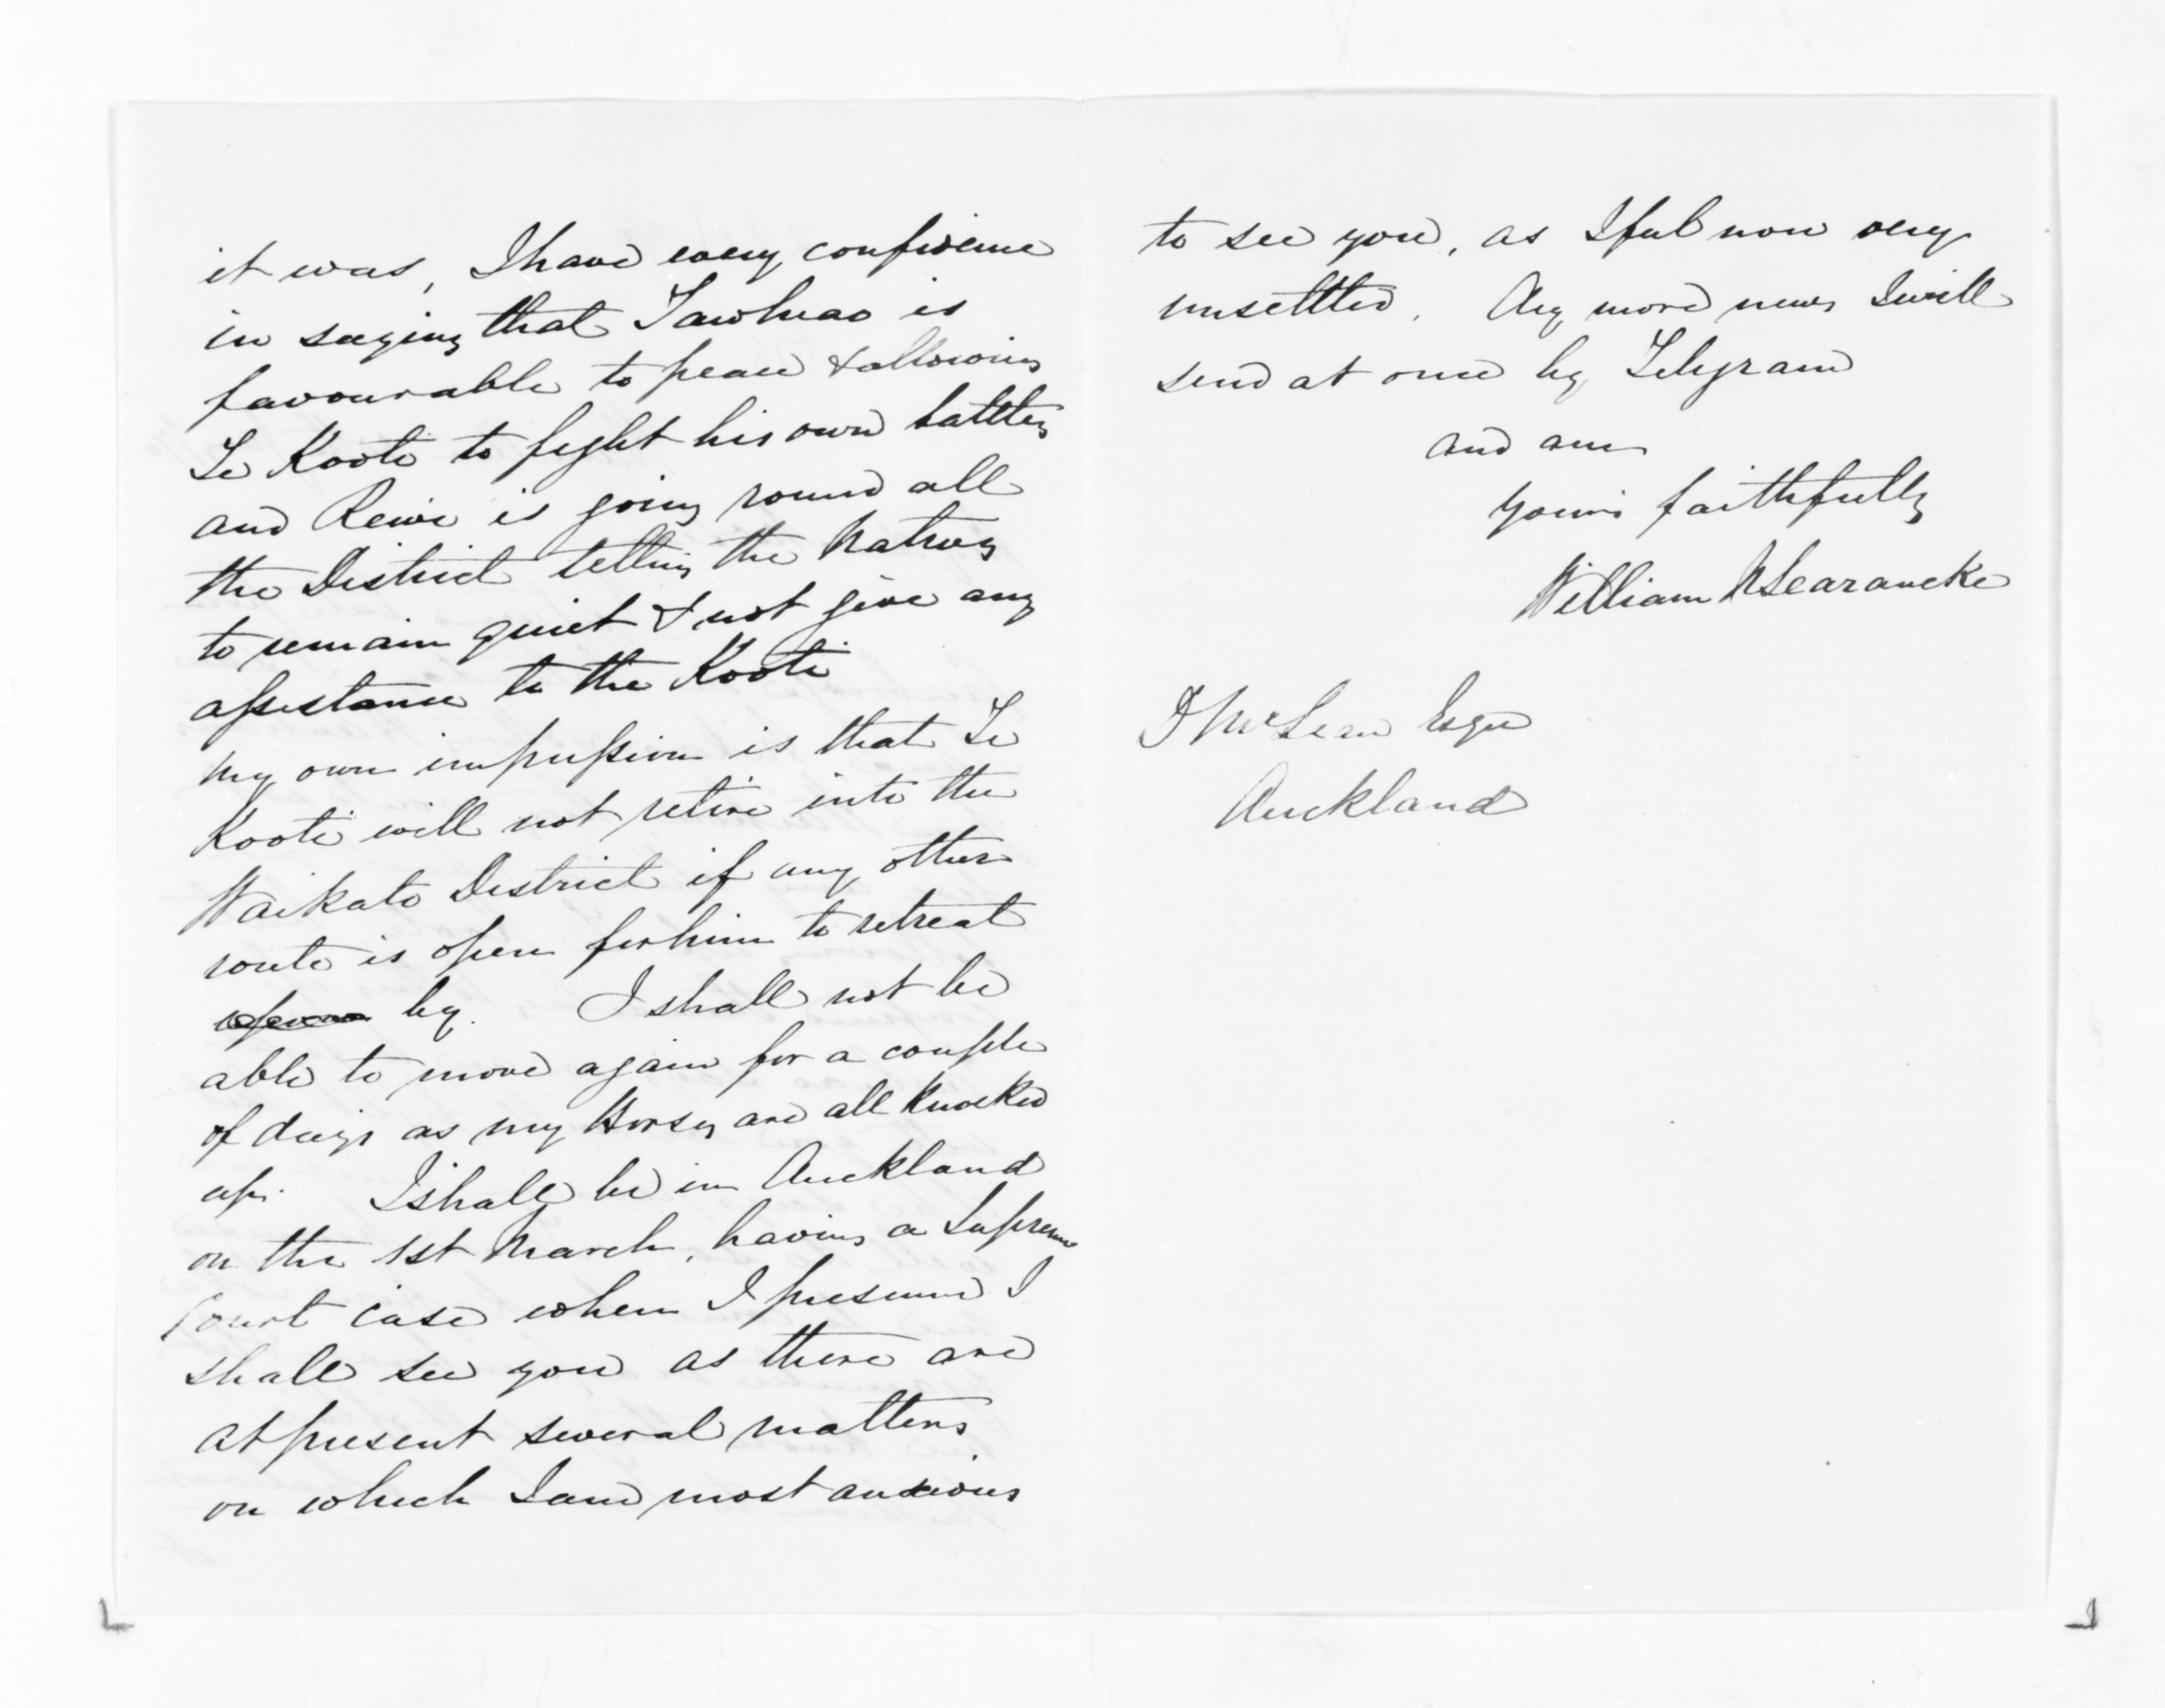 it was, I have every confidence
in saying that Tawhiao is
favourable to peace & allowing
Te Kooti to fight his own battles
and Rewi is going round all
the District telling the Natives
to remain quiet & not give any
assistance to the Kooti
My own impression is that Te
Kooti will not retire into the
Waikato District if any other
route is open for him to retreat
by. I shall not be
able to move again for a couple
of days as my Horses are all knocked
up. I shall be in Auckland
on the 1st March, having a Supreme
Court case when I presume I
shall see you as there are
at present several matters
on which I am most anxious
to see you, as I feel now very
unsettled. Any more news I will
send at once by Telegram
and am
Yours faithfully
William N Searancke
D McLean Esqre
Auckland